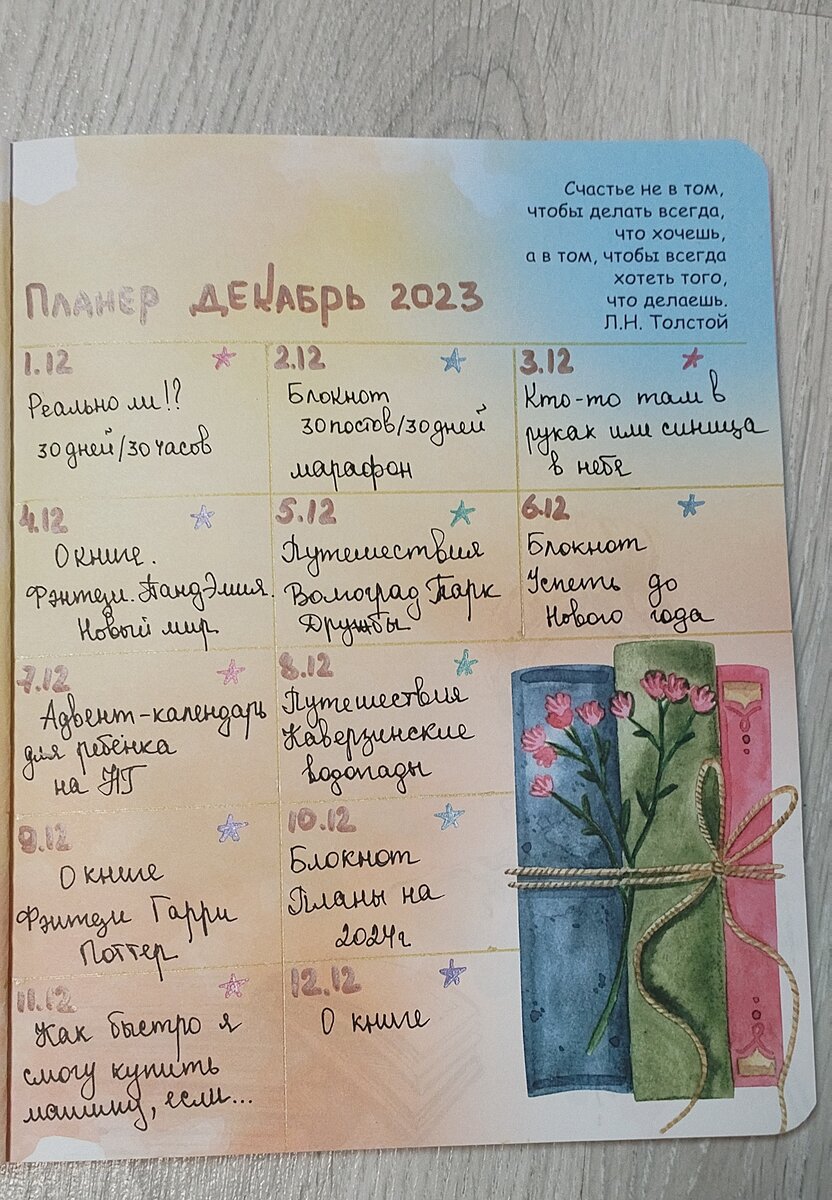 Счастье не в том,
чтобы делать всегда,
что хочешь,
а в том, чтобы всегда
хотеть того,
что делаешь.
Л.Н. Толстой
Планер Декабрь 2023
1.12
Реально ли!?
30 дней/30 часов
2.12
Блокнот
30 постов/30 дней
марафон
3.12
Кто-то там в
руках или синица
в небе
4.12
О книге.
Фэнтези. ПандЭмия.
Новый мир
5.12
Путешествия
Волгоград Парк
Дружбы
6.12
Блокнот
Успеть до
Нового года
7.12
Адвент-календарь
для ребёнка
на НГ
8.12
Путешествия
Каверзинские
водопады
9.12
О книге
Фэнтези Гарри
Поттер
10.12
Блокнот
Планы на
2024г
11.12
Как быстро я
смогу купить
машину, если...
12.12
О книге